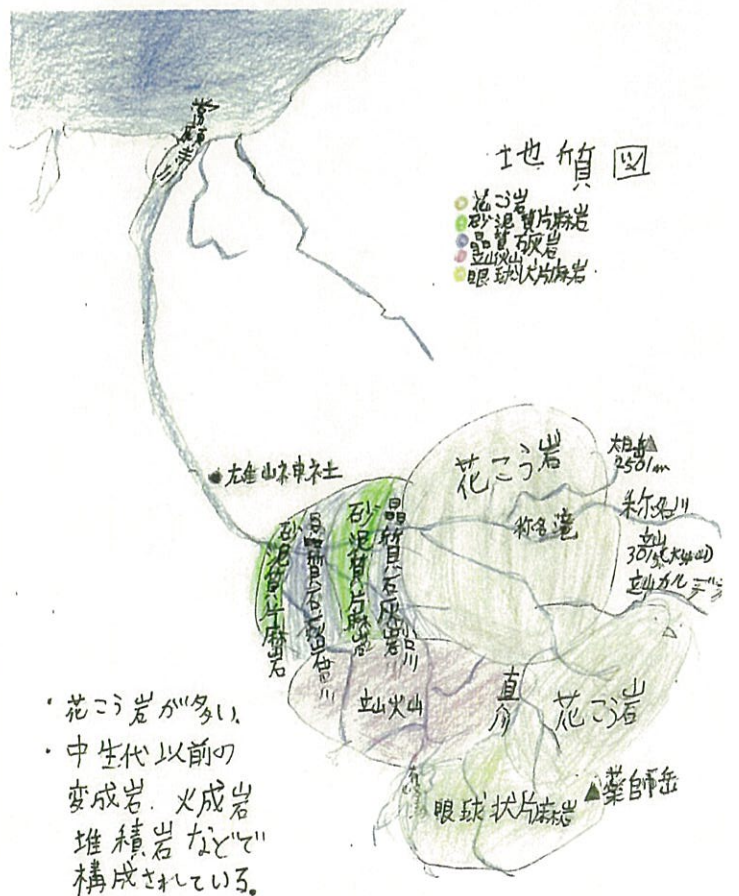 常願寺川
地質図
花こう岩
砂泥質片麻岩
晶質石灰岩
立山火山
眼球状片麻岩
雄山神社
花こう岩
大日岳
2501m
称名川
称名滝
立山
立山カルデラ
砂泥質片麻岩
晶質石灰岩
砂泥質片麻岩
晶質石灰岩
小口川
立山火山
花こう岩
眼球状片麻岩
薬師岳
・花こう岩が多い。
・中生代以前の
変成岩、火成岩
堆積岩などで
構成されている。